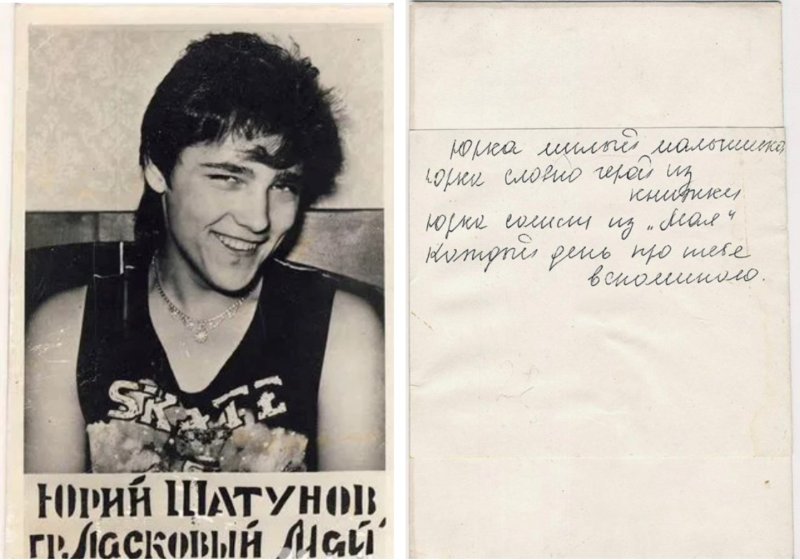 SKATE
ЮРИЙ ШАТУНОВ
ГР.ЛАСКОВЫЙ МАЙ"
Юрка милый мальчишка
Юрка словно герой из
книжки
Юрка солист из „Мая"
Каждый день про тебе
вспоминаю.